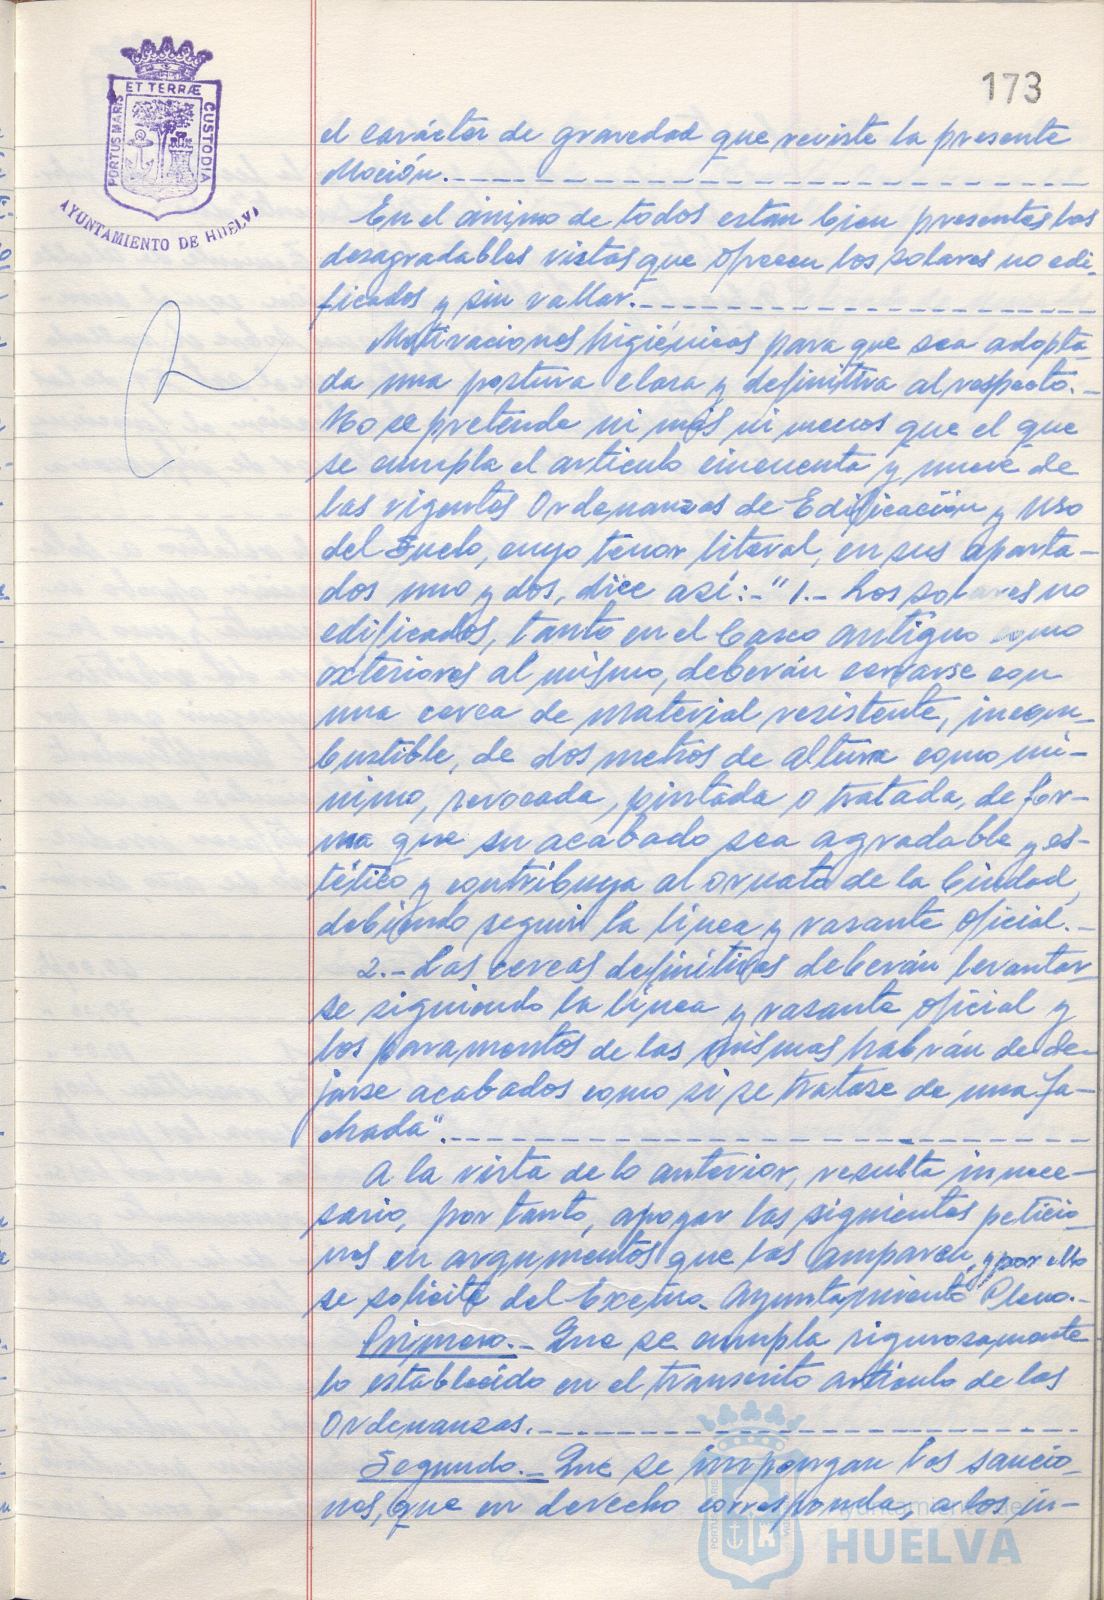 173
PORTUS MARIS ET TERRÆ CUSTODIA
AYUNTAMIENTO DE HUELVA
el carácter de gravedad que reviste la presente
Moción.
En el ánimo de todos estan bien presentes las
desagradables vistas que ofrecen los solares no edi-
ficados y sin vallar.
Motivaciones higiénicas para que sea adopta-
da una postura clara y definitiva al respecto.-
No se pretende ni más ni menos que el que
se cumpla el articulo cincuenta y nueve de
las vigentes Ordenanzas de Edificación y Uso
del Suelo, cuyo tenor literal, en sus aparta-
dos uno y dos, dice así:-" 1.- Los solares no
edificados, tanto en el Casco antiguo como
exteriores al mismo, deberán cerrarse con
una cerca de material resistente, incom-
bustible, de dos metros de altura como mí-
nimo, revocada, pintada o tratada, de for-
ma que su acabado sea agradable y es-
tético y contribuya al ornato de la Ciudad,
debiendo seguir la línea y rasante oficial.-
2.- Las cercas definitivas deberán levantar
se siguiendo la línea y rasante oficial y
los paramentos de las mismas habrán de de-
jarse acabados como si se tratase de una fa-
chada".
A la vista de lo anterior, resulta innece-
sario, por tanto, apoyar las siguientes peticio-
nes en argumentos que las amparen, y por ello
se solicita del Excmo. Ayuntamiento Pleno.-
Primero.- Que se cumpla rigurosamente
lo establecido en el transcrito artículo de las
Ordenanzas.
Segundo.- Que se impongan las sancio-
nes, que en derecho corresponda, a los in-
Ayuntamiento de
HUELVA